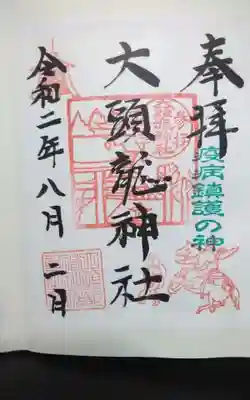 奉拝
疫病鎮護の神
大頭龍神社
令和二年八月二日